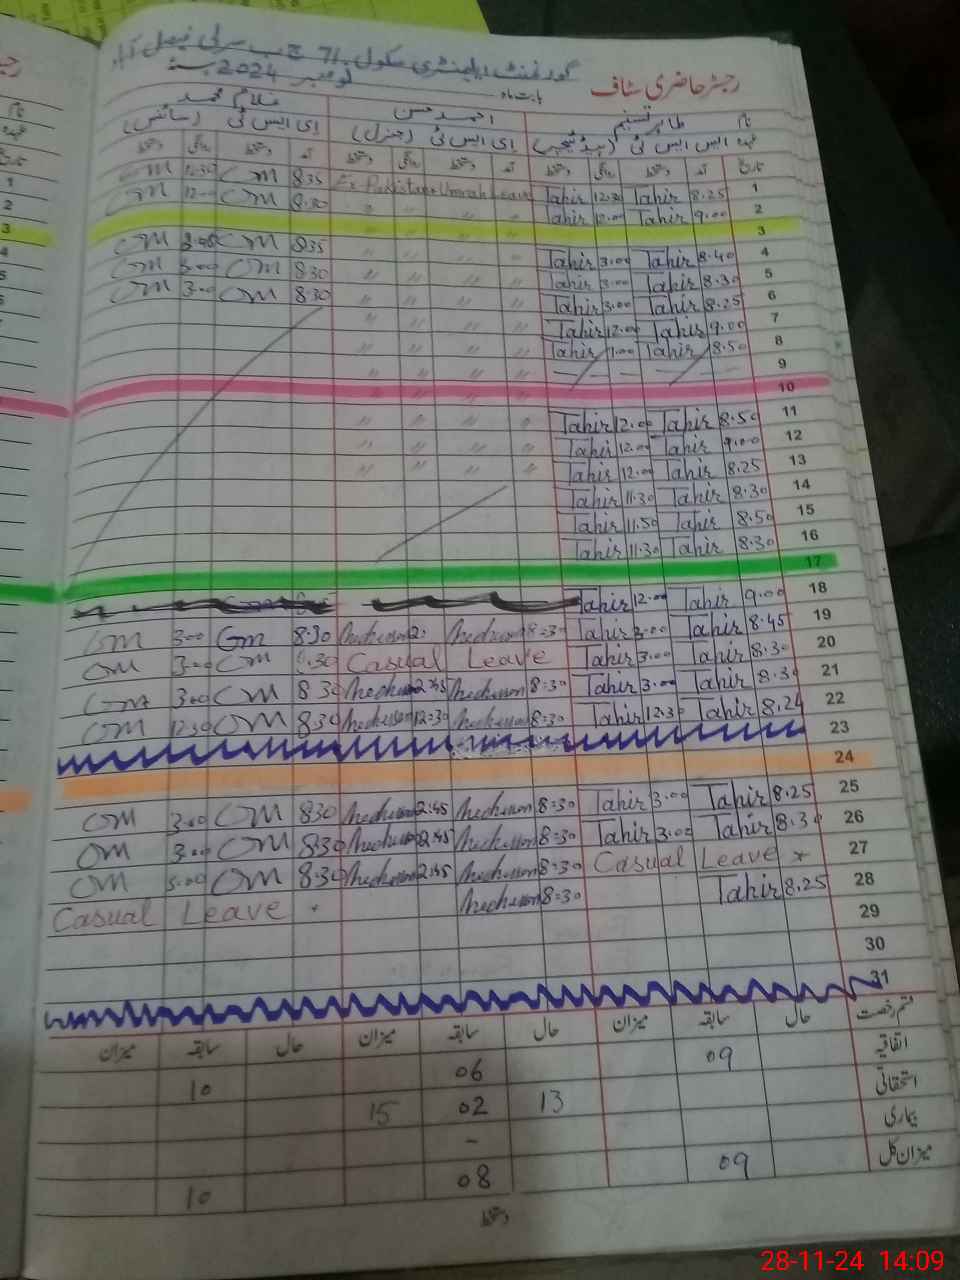 رجسٹر حاضری سٹاف
گورنمنٹ ایلیمنٹری سکول 71 ج ب سرلی فیصل آباد
بابت ماہ نومبر 2024
نام طاہر تسنیم احمد حسن غلام محمد
عہدہ ایس ایس ٹی (ہیڈ ٹیچر) ای ایس ٹی (جنرل) ای ایس ٹی (سائنس)
تاریخ آمد دستخط روانگی دستخط آمد دستخط روانگی دستخط آمد دستخط روانگی دستخط
1 8.25 Tahir 12.30 Tahir Ex Pakistan Umrah Leave 8.35 GM 12.30 GM
2 9.00 Tahir 12.00 Tahir 〃 〃 〃 〃 8.30 GM 12.00 GM
3 〃 〃 〃 〃
4 8.40 Tahir 3.00 Tahir 〃 〃 〃 〃 8.35 GM 3.00 GM
5 8.30 Tahir 3.00 Tahir 〃 〃 〃 〃 8.30 GM 3.00 GM
6 8.25 Tahir 3.00 Tahir 〃 〃 〃 〃 8.30 GM 3.00 GM
7 9.00 Tahir 12.00 Tahir 〃 〃 〃 〃
8 8.50 Tahir 1.00 Tahir 〃 〃 〃 〃
9 — — — — 〃 〃 〃 〃
10 〃 〃 〃 〃
11 8.50 Tahir 12.00 Tahir 〃 〃 〃 〃
12 9.00 Tahir 12.00 Tahir 〃 〃 〃 〃
13 8.25 Tahir 12.00 Tahir 〃 〃 〃 〃
14 8.30 Tahir 11.30 Tahir
15 8.50 Tahir 11.50 Tahir
16 8.30 Tahir 11.30 Tahir
17
18 9.00 Tahir 12.00 Tahir
19 8.45 Tahir 3.00 Tahir 8=30 8.30 GM 3.00 GM
20 8.30 Tahir 3.00 Tahir Casual Leave 8.30 GM 3.00 GM
21 8.30 Tahir 3.00 Tahir 8=30 2=45 8.30 GM 3.00 GM
22 8.24 Tahir 12.30 Tahir 8=30 12=30 8.30 GM 12.30 GM
23
24
25 8.25 Tahir 3.00 Tahir 8=30 2=45 8.30 GM 3.00 GM
26 8.30 Tahir 3.00 Tahir 8=30 2=45 8.30 GM 3.00 GM
27 Casual Leave 8=30 2=45 8.30 GM 3.00 GM
28 8.25 Tahir 8=30 Casual Leave
29
30
31
قسم رخصت حال سابقہ میزان حال سابقہ میزان حال سابقہ میزان
اتفاقیہ 09 06 10
استحقاقی 13 02 15
بیماری -
میزان کل 09 08 10
دستخط
28-11-24 14:09